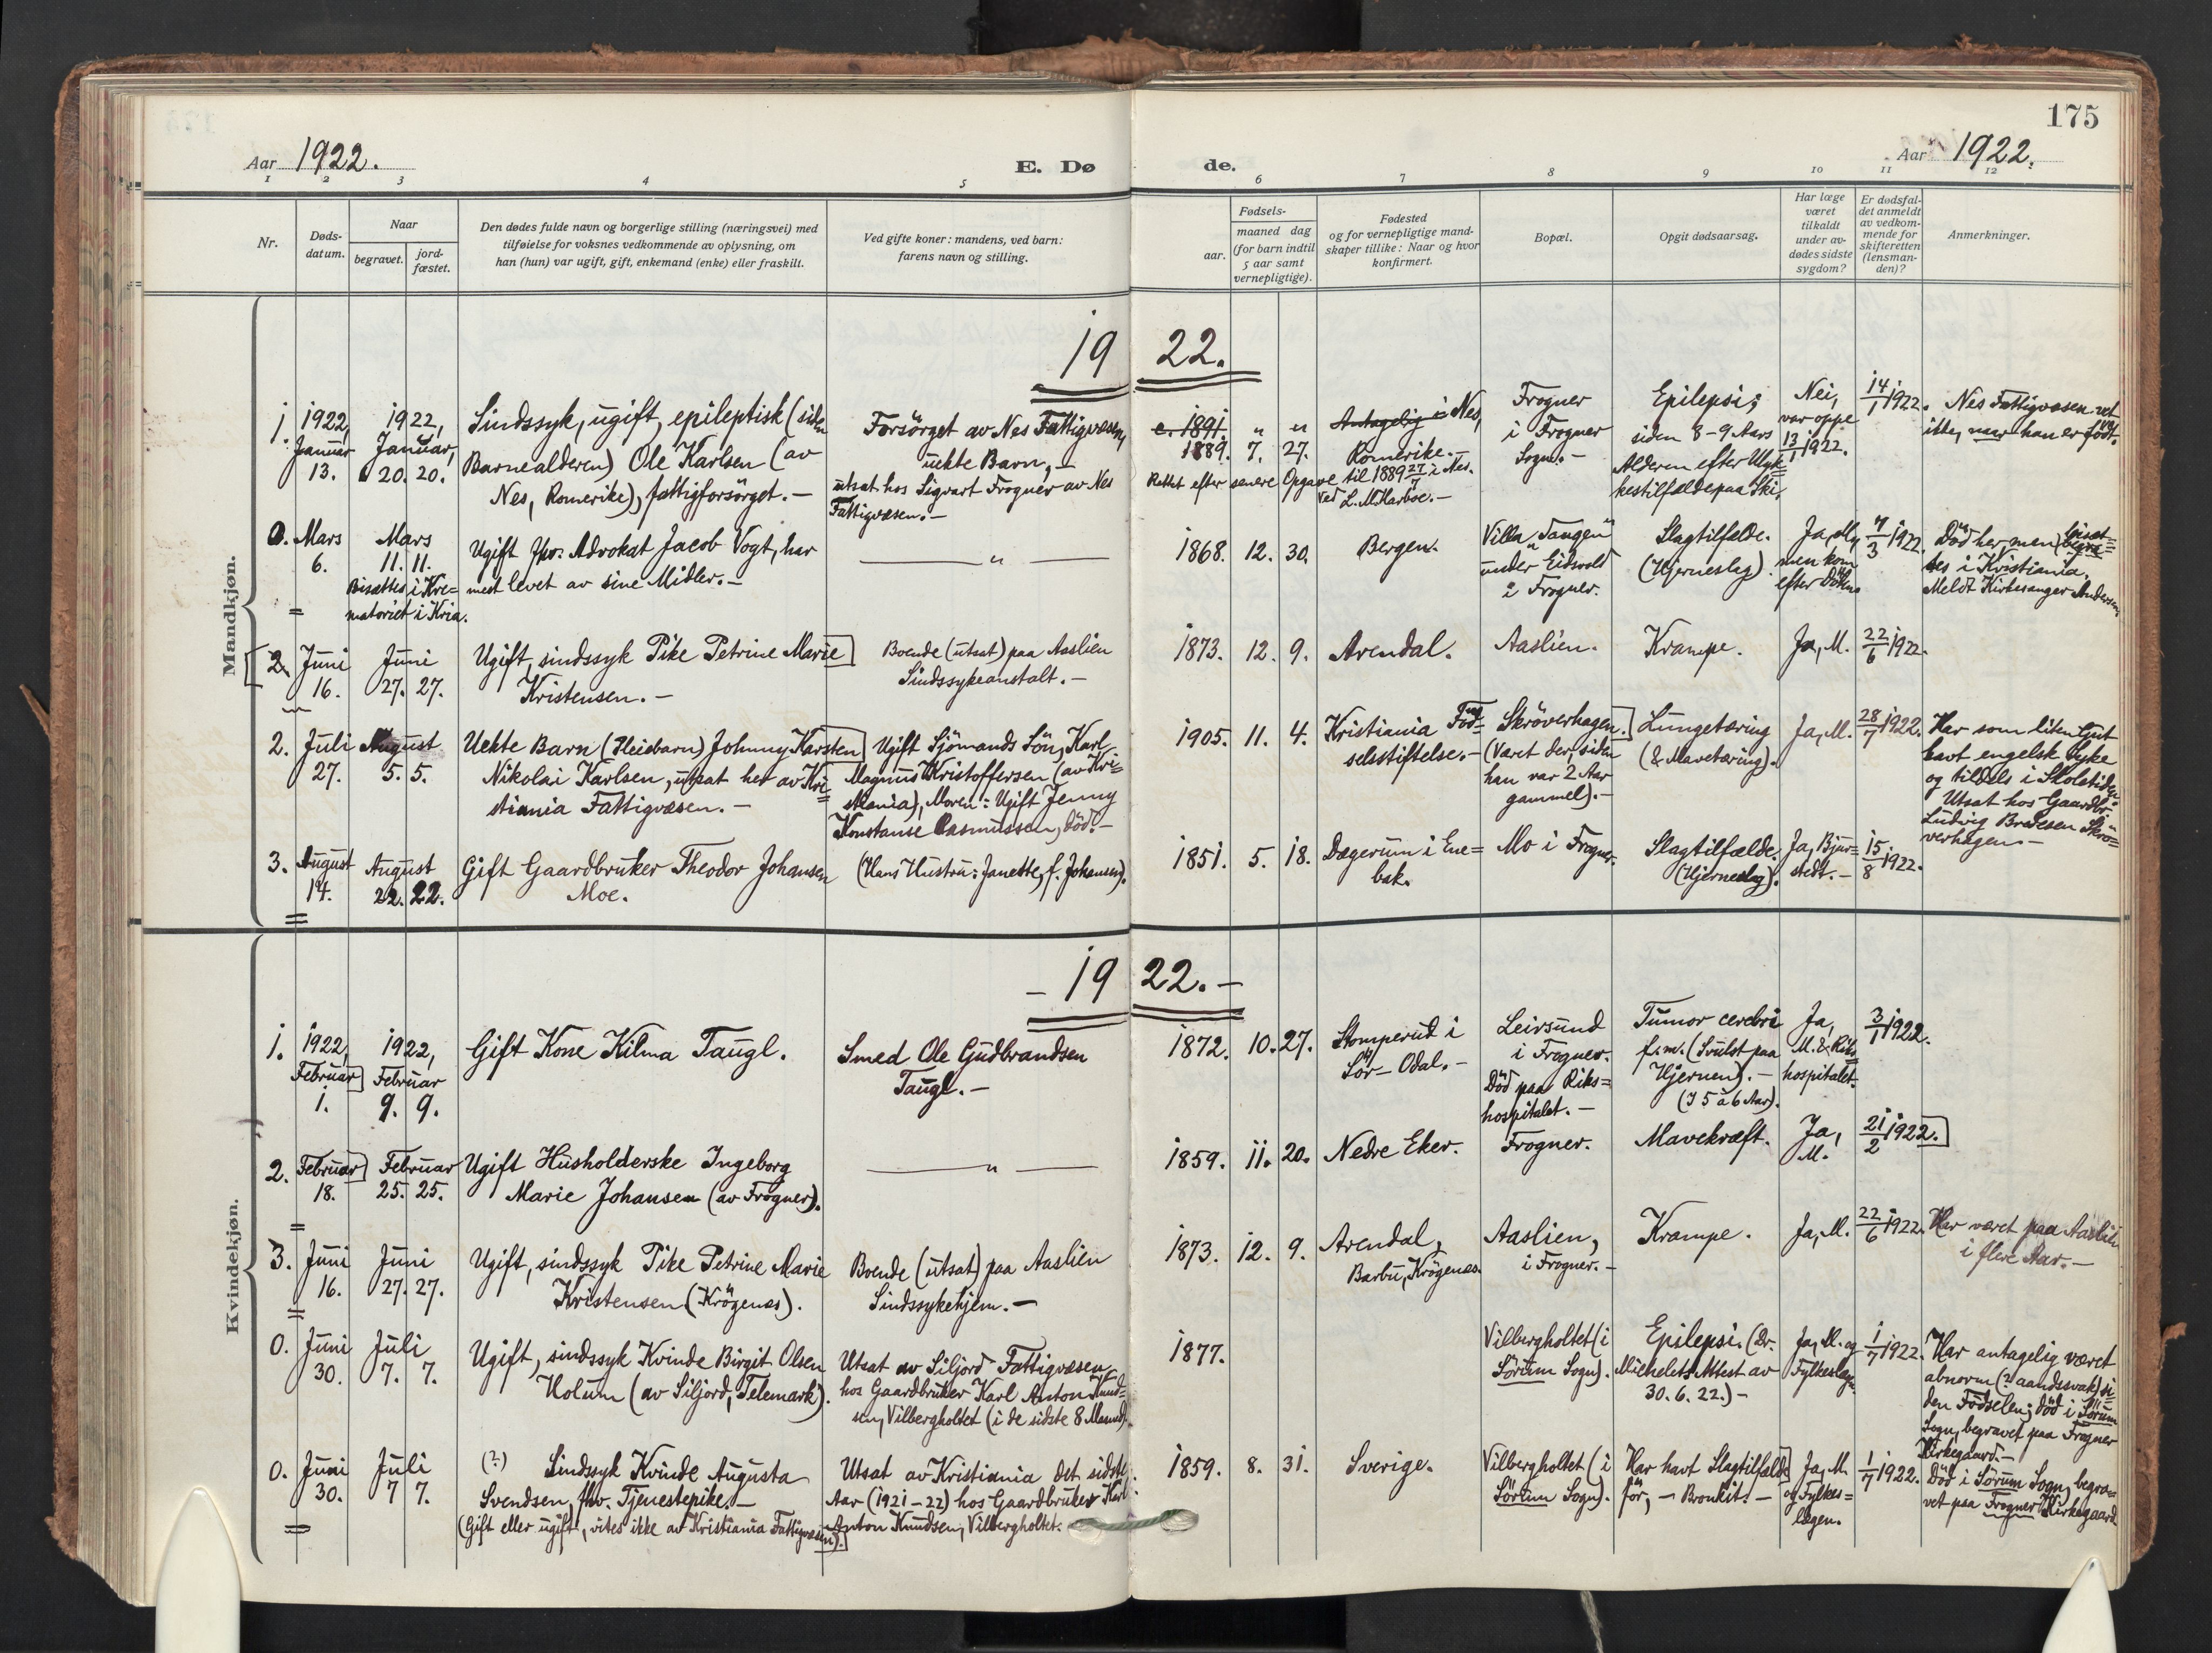 175
Aar 1922. E. Dø de. Aar 1922.
1 2 3 4 5 6 7 8 9 10 11 12
Nr.
Døds-
datum.
Naar
begravet.
jord-
fæstet.
Den dødes fulde navn og borgerlige stilling (næringsvei) med
tilføielse for voksnes vedkommende av oplysning, om
han (hun) var ugift, gift, enkemand (enke) eller fraskilt.
Ved gifte koner: mandens, ved barn:
farens navn og stilling.
aar.
Fødsels-
maaned dag
(for barn indtil
5 aar samt
vernepligtige).
Fødested
og for vernepligtige mand-
skaper tillike: Naar og hvor
konfirmert.
Bopæl.
Opgit dødsaarsag.
Har læge
været
tilkaldt
under av-
dødes sidste
sygdom?
Er dødsfal-
det anmeldt
av vedkom-
mende for
skifteretten
(lensman-
den)?
Anmerkninger.
Mandkjøn.
19 22.
1. 1922, Januar 13.
1922, Januar, 20. 20.
Sindssyk, ugift, epileptisk (siden
Barnealderen) Ole Karlsen (av
Nes, Romerike), fattigforsörget. —
Forsörget av Nes Fattigvæsen,
uekte Barn, —
utsat hos Sigvart Frogner av Nes
Fattigvæsen. —
c. 1891. " "
1889. 7. 27.
Antagelig i Nes,
Romerike. —
Rettet efter senere Opgave til 1889 27/7 i Nes.
ved L. M. Harboe. —
Frogner
i Frogner
Sogn. —
Epilepsi;
siden 8-9 Aars
Alderen efter Ulyk-
kestilfælde paa Ski.
Nei,
var oppe
13/1 1922.
14/1 1922.
Nes Fattigvæsen vet
ikke, naar han er födt.
0. Mars 6.
Mars 11. 11.
Bisættes i Kre=
matoriet i Kria.
Ugift fhv. Advokat Jacob Vogt, har
mest levet av sine Midler. —
— " —
1868. 12. 30.
Bergen.
Villa "Tangen"
under Eidsvold
i Frogner.
Slagtilfælde.
(Hjerneslag).
Ja, M,
men kom
efter Döden
7/3 1922.
Död her, men bisæt=
tes i Kristiania.
Meldt Kirkesanger Andersen,
2. Juni 16.
Juni 27. 27.
Ugift, sindssyk Pike Petrine Marie
Kristensen. —
Boende (utsat) paa Aaslien
Sindssykeanstalt. —
1873. 12. 9.
Arendal.
Aaslien.
Krampe.
Ja, M.
22/6 1922.
2. Juli 27.
August 5. 5.
Uekte Barn (Pleiebarn) Johnny Karsten
Nikolai Karlsen, utsat her av Kri=
stiania Fattigvæsen. —
Ugift Sjömands Sön, Karl
Magnus Kristoffersen (av Kri=
stiania), Moren: Ugift Jenny
Konstanse Rasmussen, död. —
1905. 11. 4.
Kristiania Föd=
selsstiftelse. —
Skröverhagen.
(Været der, siden
han var 2 Aar
gammel). —
Lungetæring
(& Mavetæring).
Ja, M.
28/7 1922.
Har som liten Gut
havt engelsk Syke
og tildels i Skoletiden.
Utsat hos Gaardbr.
Ludvig Bredesen Skrö=
verhagen —
3. August 14.
August 22. 22.
Gift Gaardbruker Theodor Johansen
Moe.
(Hans Hustru: Janette, f. Johansen).
1851. 5. 18.
Dægerum i Ene=
bak.
Mo i Frogner.
Slagtilfælde.
(Hjerneslag).
Ja, Bjur=
stedt. —
15/8 1922.
Kvindekjøn.
— 19 22. —
1. 1922, Februar 1.
1922, Februar 9. 9.
Gift Kone Kilma Taugl.
Smed Ole Gudbrandsen
Taugl. —
1872. 10. 27.
Stomperud i
Sör- Odal. —
Leirsund
i Frogner.
Död paa Riks=
hospitalet. —
Tumor cerebri
f.m. (Svulst paa
Hjernen). —
(I 5 à 6 Aar).
Ja,
M. & Riks
hospitalet.
3/1 1922.
2. Februar 18.
Februar 25. 25.
Ugift Husholderske Ingeborg
Marie Johansen (av Frogner).
— " —
1859. 11. 20.
Nedre Eker.
Frogner.
Mavekræft.
Ja,
M.
21/2 1922.
3. Juni 16.
Juni 27. 27.
Ugift, sindssyk Pike Petrine Marie
Kristensen (Krögenæs).
Boende (utsat) paa Aaslien
Sindssykehjem. —
1873. 12. 9.
Arendal,
Barbu, Krögenæs.
Aaslien,
i Frogner. —
Krampe.
Ja, M.
22/6 1922.
Har været paa Aaslien
i flere Aar. —
0. Juni 30.
Juli 7. 7.
Ugift, sindssyk Kvinde Birgit Olsen
Holum (av Siljord, Telemark).
Utsat av Siljord Fattigvæsen
hos Gaardbruker Karl Anton Knud=
sen, Vilbergholtet (i de sidste 8 Maaned).
1877.
Vilbergholtet (i
Sörum Sogn).
Epilepsi. (Dr.
Michelets Attest av
30. 6. 22.) —
Ja, M. og
Fylkeslægen.
1/7 1922.
Har antagelig været
abnorm (? aandssvak) si=
den Födselen; död i Sörum
Sogn, begravet paa Frogner
Kirkegaard. —
0. Juni 30.
Juli 7 7.
(?) Sindssyk Kvinde Augusta
Svendsen, fhv. Tjenestepike. —
(Gift eller ugift, vites ikke av Kristiania Fattigvæsen).
Utsat av Kristiania det sidste
Aar (1921-22) hos Gaardbruker Karl
Anton Knudsen, Vilbergholtet.
1859. 8. 31.
Sverige.
Vilbergholtet (i
Sörum Sogn).
Har havt Slagtilfælde
för, — Bronkit. —
Ja, M.
og Fylkes=
lægen.
1/7 1922.
Död i Sörum Sogn, begra=
vet paa Frogner Kirkegaard